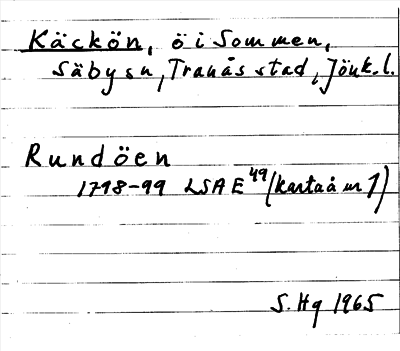 Käckön, ö i Sommen,
Säby sn, Tranås stad, Jönk.l.
Rundöen
1798-99 LSA E 49 (karta å nr 1)
S. Hg 1965